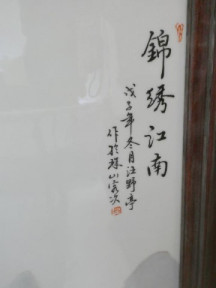 錦綉江南
戊子年冬月汪野亭
作於珠山客次